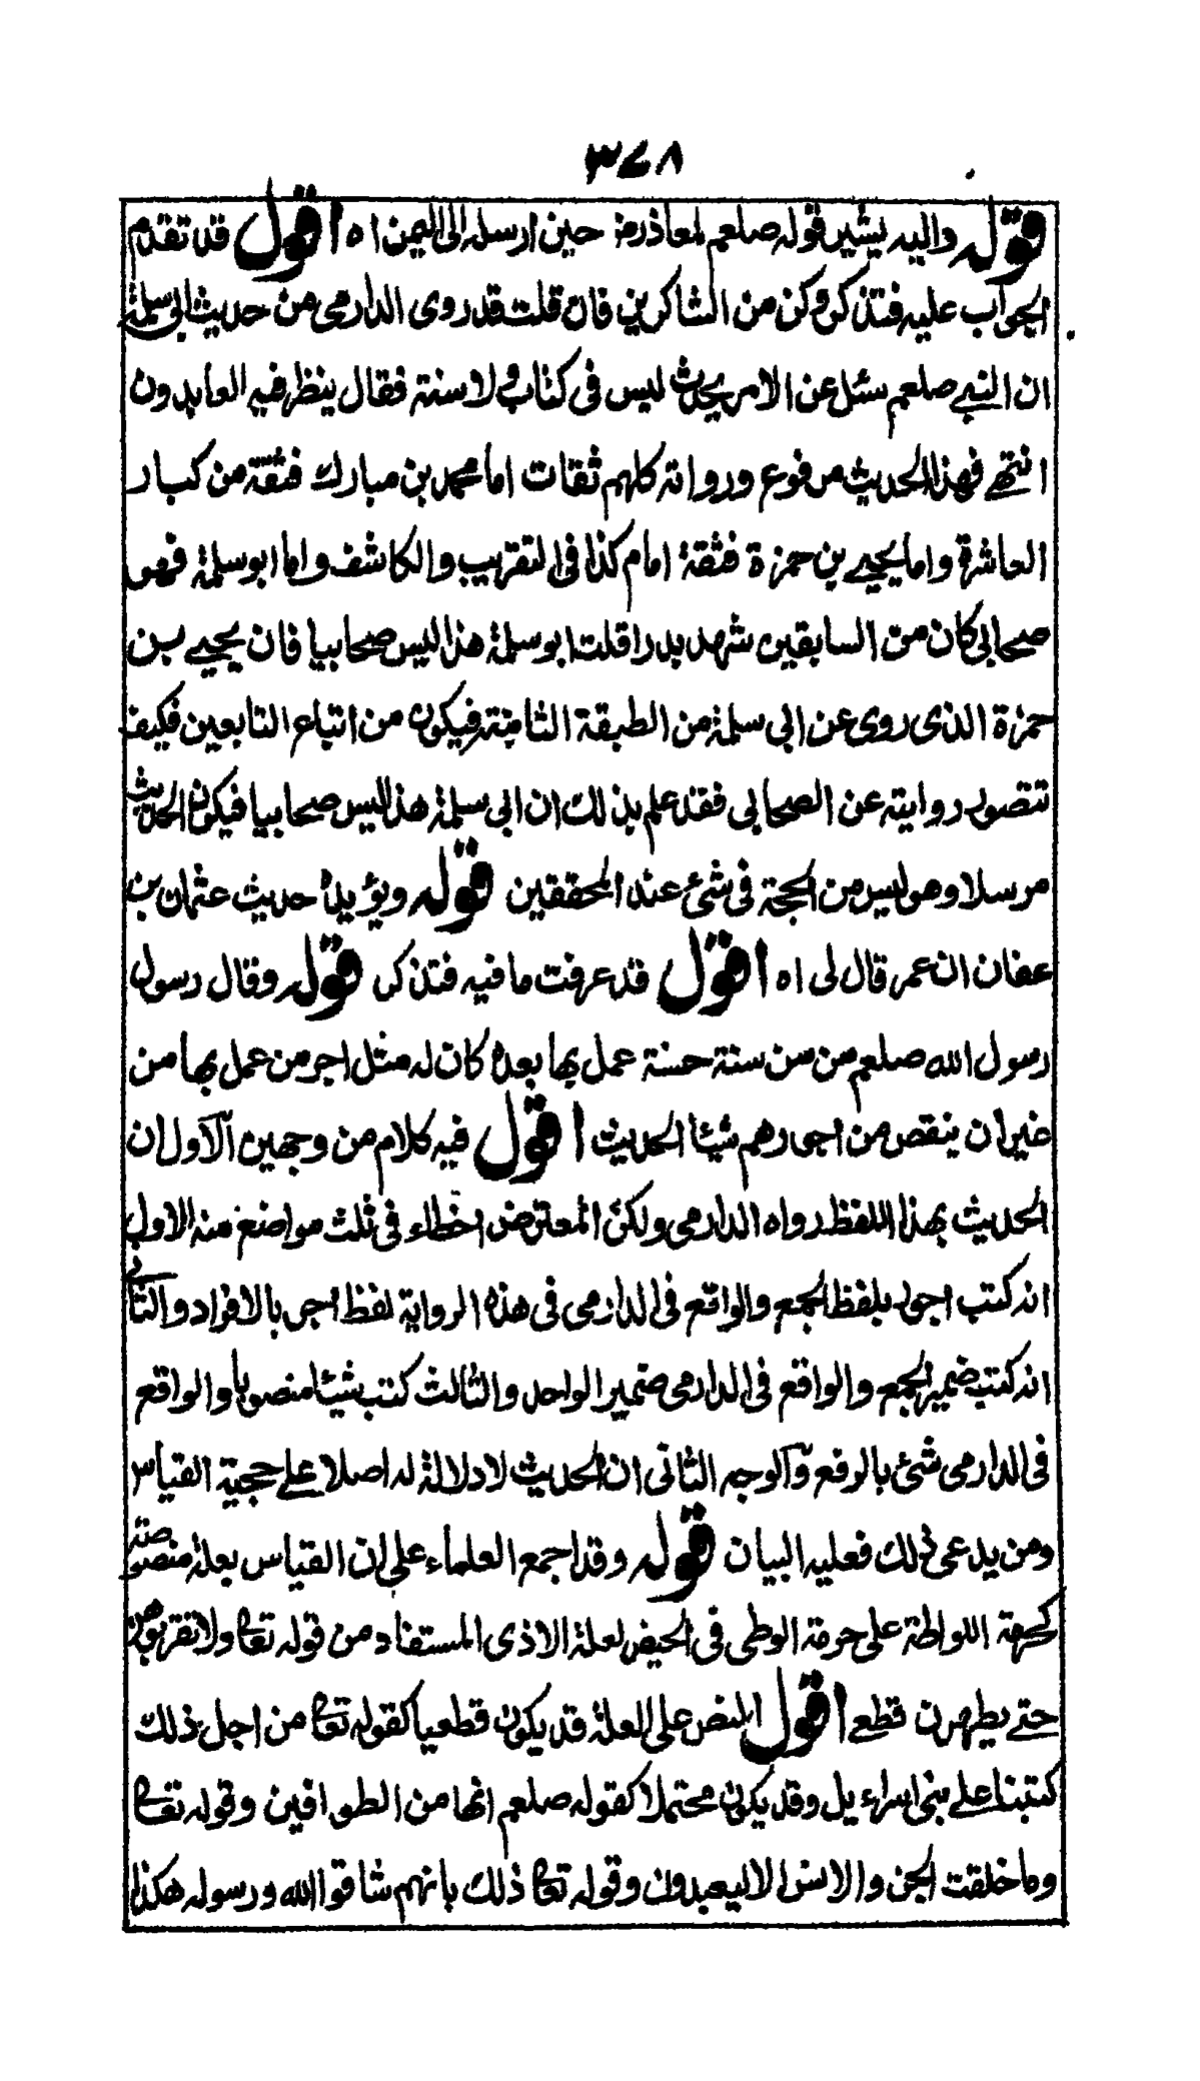 ٣٧٨
قوله واليه يشير قوله صلعم لمعاذ رض حين ارسله الى اليمن اه اقول قد تقدم
الجواب عليه فتذكر وكن من الشاكرين فان قلت قد روى الدارمى من حديث ابى سلمة
ان النبے صلعم سئل عن الامر يحدث ليس فى كتاب ولا سنة فقال ينظر فيه العابدون
انتهے فهذا الحديث مرفوع ورواته كلهم ثقات اما محمد بن مبارك فثقة من كبار
العاشرة واما يحيے بن حمزة فثقة امام كذا فى التقريب والكاشف واما ابو سلمة فهو
صحابى كان من السابقين شهد بدرا قلت ابو سلمة هذا ليس صحابيا فان يحيے بن
حمزة الذى روى عن ابى سلمة من الطبقة الثامنة فيكون من اتباع التابعين فكيف
تتصور روايته عن الصحابى فقد علم بذلك ان ابى سلمة هذا ليس صحابيا فيكون الحديث
مرسلا وهو ليس من الحجة فى شئ عند المحققين قوله ويؤيده حديث عثمان بن
عفان ان عمر قال لى اه اقول قد عرفت ما فيه فتذكر قوله وقال رسول
رسول الله صلعم من سن سنة حسنة عمل بها بعده كان له مثل اجر من عمل بها من
غير ان ينقص من اجورهم شيئا الحديث اقول فيه كلام من وجهين الاول ان
الحديث بهذا اللفظ رواه الدارمى ولكن المعترض اخطاء فى ثلث مواضع منه الاول
انه كتب اجور بلفظ الجمع والواقع فى الدارمى فى هذه الرواية لفظ اجر بالافراد والثانے
انه كتب ضمير الجمع والواقع فى الدارمى ضمير الواحد والثالث كتب شيئا منصوبا والواقع
فى الدارمى شئ بالرفع والوجه الثانى ان الحديث لا دلالة له اصلا علے حجية القياس
ومن يدعى ذلك فعليه البيان قوله وقد اجمع العلماء على ان القياس بعلة منصوصة
كحرمة اللواطة على حرمة الوطى فى الحيض لعلة الاذى المستفاد من قوله تعا ولا تقربوهن
حتے يطهرن قطع اقول النص على العلة قد يكون قطعيا كقوله تعا من اجل ذلك
كتبنا علے بنى اسراءيل وقد يكون محتملا كقوله صلعم انها من الطوافين وقوله تعا
وما خلقت الجن والانس الا ليعبدون وقوله تعا ذلك بانهم شاقوا الله ورسوله هكذا